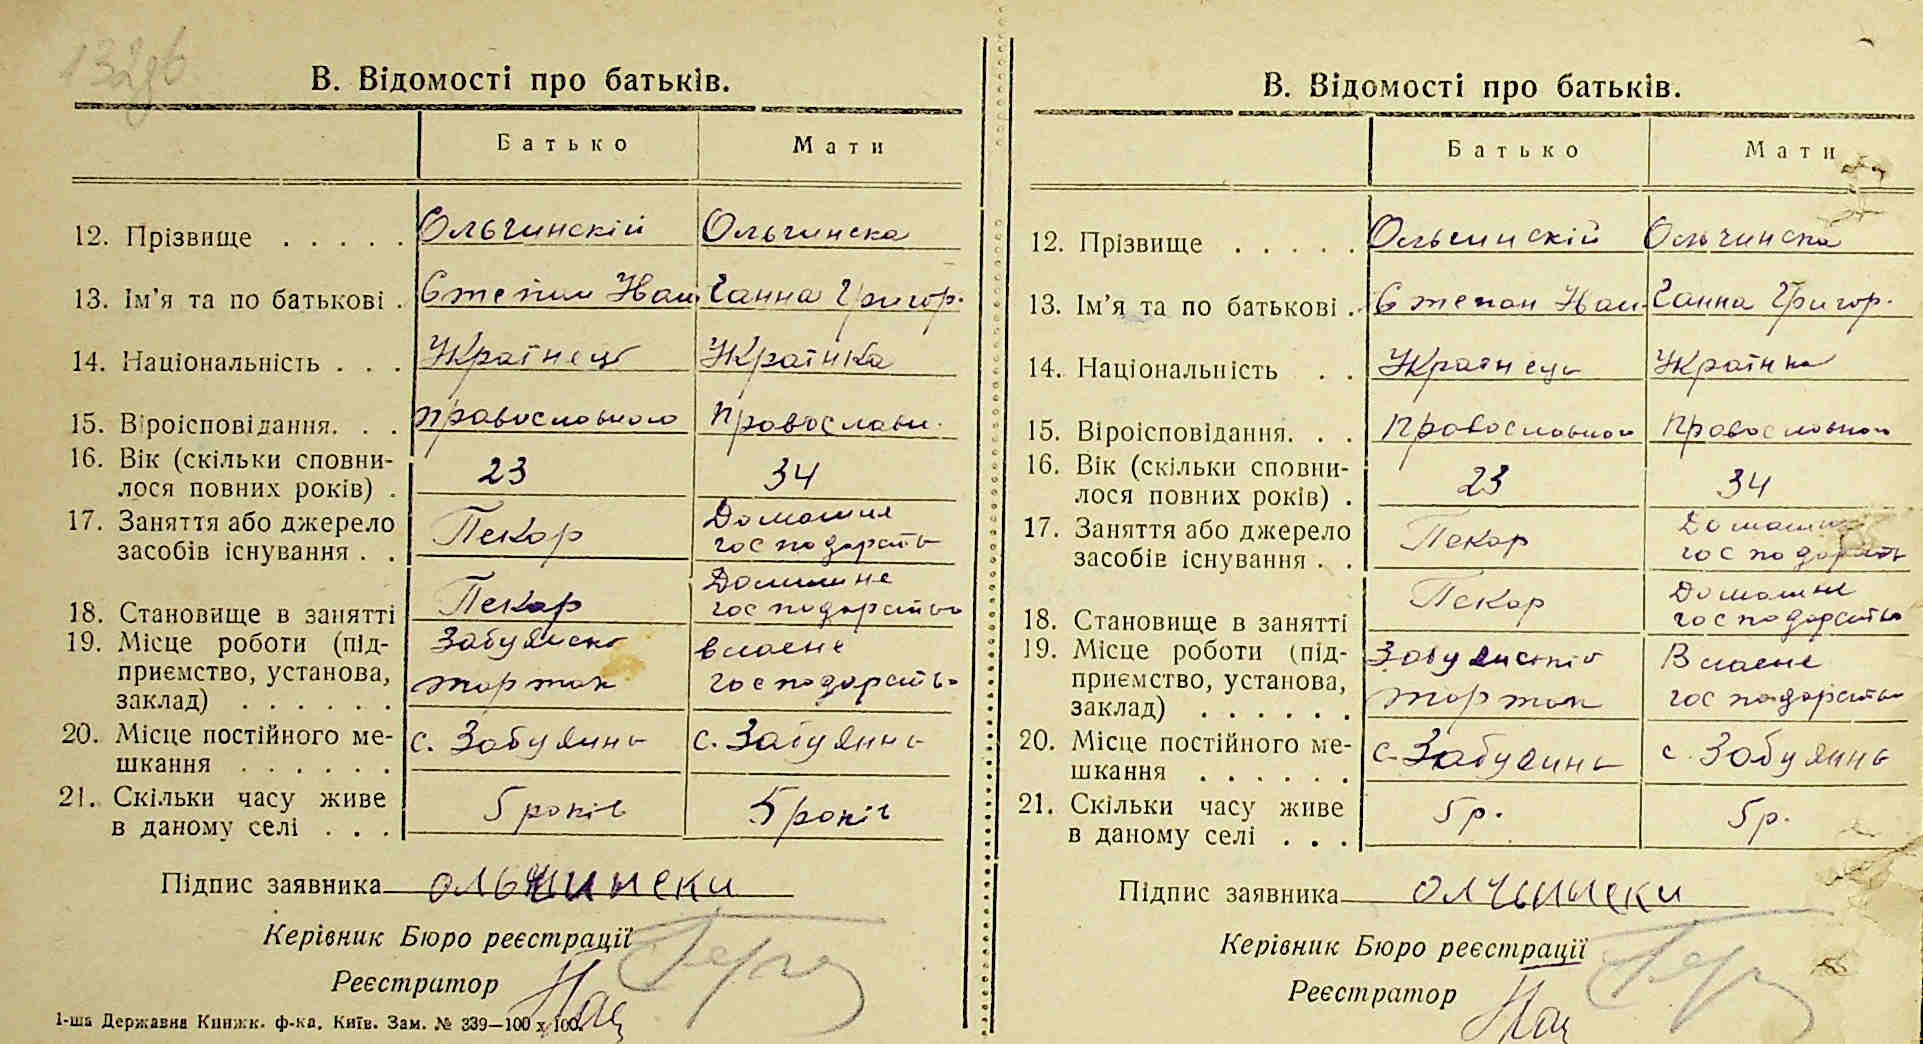 132зв
В. Відомості про батьків.
Батько Мати
12. Прізвище . . . . . Ольчинскій Ольчинска
13. Ім'я та по батькові . Степан Иван Ганна Григор.
14. Національність . . . Українець Українка
15. Віроісповідання. . . Православного Православн.
16. Вік (скільки сповни-
лося повних років) . 23 34
17. Заняття або джерело Домашнє
засобів існування . . Пекар господарств
Домашнє
18. Становище в занятті Пекар господарство
19. Місце роботи (під- власне
приємство, установа, господарство
заклад) . . . . . .
20. Місце постійного ме- с. Забуяннь с. Забуяннь
шкання . . . . . .
21. Скільки часу живе 5 років 5 років
в даному селі . . .
Підпис заявника ольчински
Керівник Бюро реєстрації
Реєстратор
1-ша Державна Книжк. ф-ка. Київ. Зам. № 339—100 х 100.
В. Відомості про батьків.
Батько Мати
12. Прізвище . . . . . Ольчинскій Ольчинска
13. Ім'я та по батькові . . Степан Иван Ганна Григор.
14. Національність . . Українець Українка
15. Віроісповідання. . . Православного Православного
16. Вік (скільки сповни-
лося повних років) . 23 34
17. Заняття або джерело Домашнє
засобів існування . . Пекар господарств
Домашнє
18. Становище в занятті Пекар господарство
19. Місце роботи (під- Власне
приємство, установа, господарство
заклад) . . . . . .
20. Місце постійного ме- с. Забуяннь с. Забуяннь
шкання . . . . . .
21. Скільки часу живе 5 р. 5 р.
в даному селі . . .
Підпис заявника олчьински
Керівник Бюро реєстрації
Реєстратор